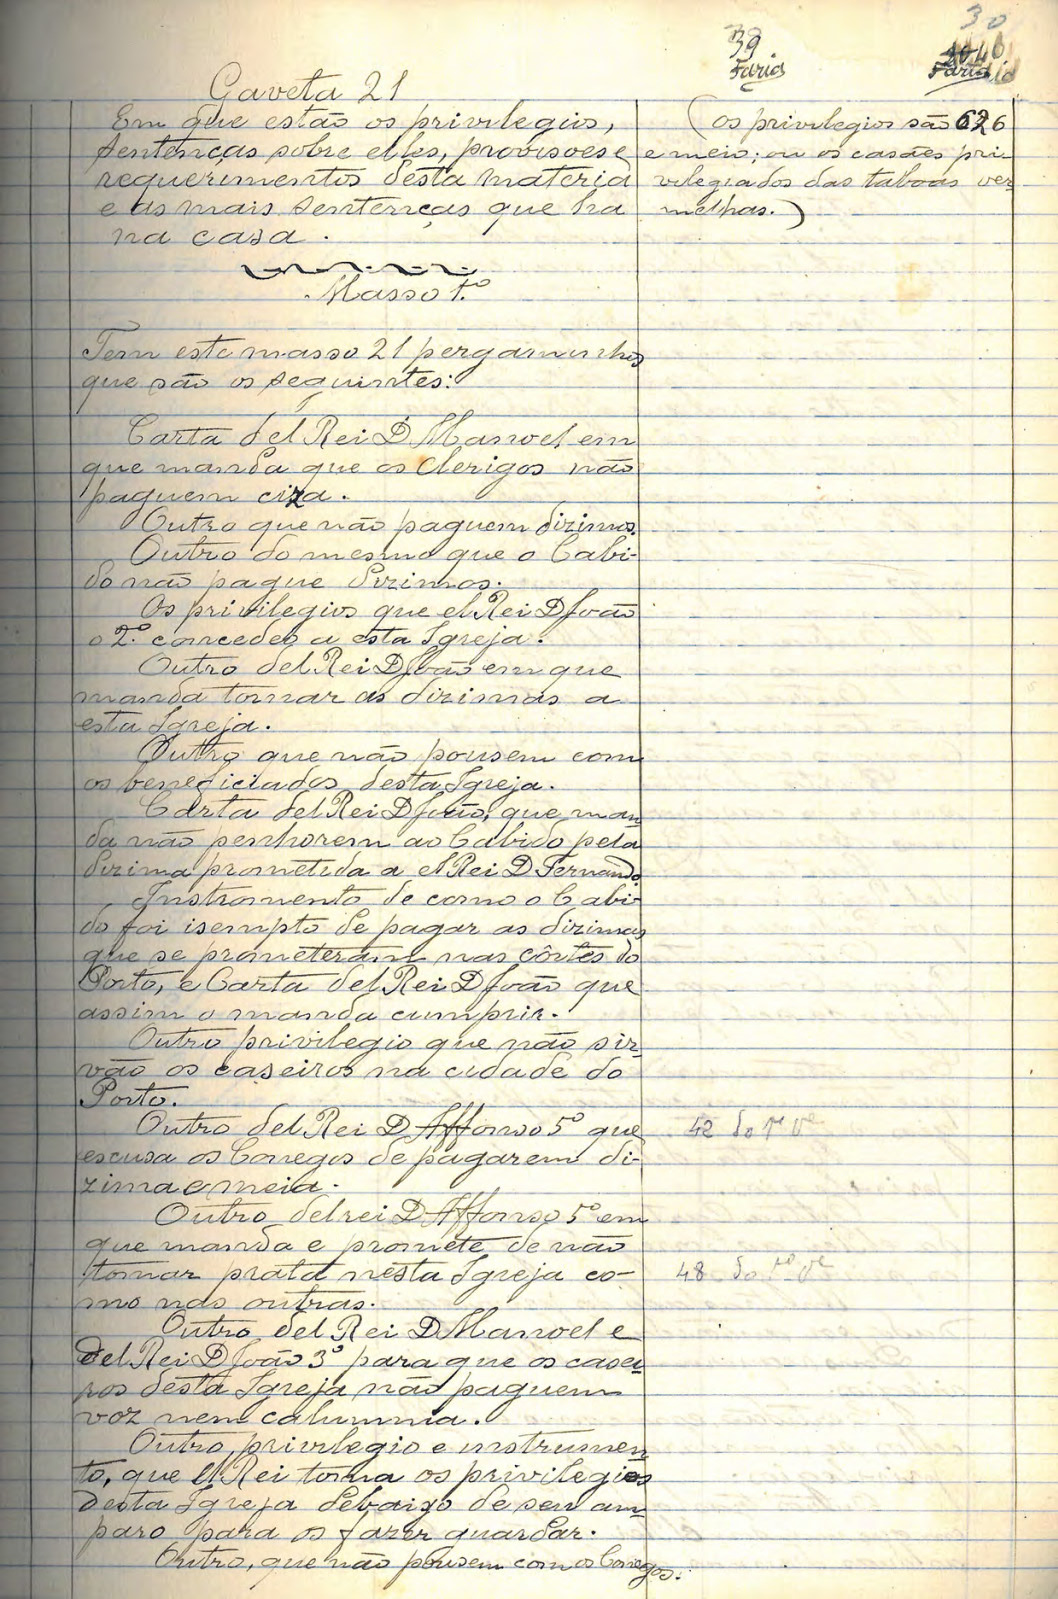 30
39
Faria
Faria
Gaveta 21
Em que estão os privilegios,
sentenças sobre elles, provisoes e
requerimentos desta materia
e as mais sentenças que ha
na casa.
(os privilegios são 626
e meio; ou os casáes pri-
vilegiados das taboas ver-
melhas.)
Masso 1.º
Tem este masso 21 pergaminhos
que são os seguintes:
Carta del Rei D Manoel em
que manda que os clerigos não
paguem ciza.
Outro que não paguem dizimos.
Outro do mesmo que o Cabi-
do não pague dizimos.
Os privilegios que el Rei D João
o 2.º concedeo a esta Igreja.
Outro del Rei D João em que
manda tornar as dizimas a
esta Igreja.
Outro que não pousem com
os beneficiados desta Igreja.
Carta del Rei D João, que man-
da não penhorem ao Cabido pela
dizima prometida a el Rei D Fernando.
Instromento de como o Cabi-
do foi isempto de pagar as dizimas
que se prometeram nas côrtes do
Porto, e Carta del Rei D João que
assim o manda cumprir.
Outro privilegio que não sir-
vão os caseiros na cidade do
Porto.
Outro del Rei D Affonso 5º que
escusa os Conegos de pagarem di-
zima e meia.
42 do 1º Vº
Outro del rei D Affonso 5º em
que manda e promete de não
tomar prata nesta Igreja co-
mo nas outras.
48 do 1º Vº
Outro del Rei D Manoel e
del Rei D João 3º para que os casei-
ros desta Igreja não paguem
voz nem calumnia.
Outro privilegio e instrumen-
to, que el Rei toma os privilegios
desta Igreja debaixo de seu am-
paro para os fazer guardar.
Outro, que não pousem com os Conegos.